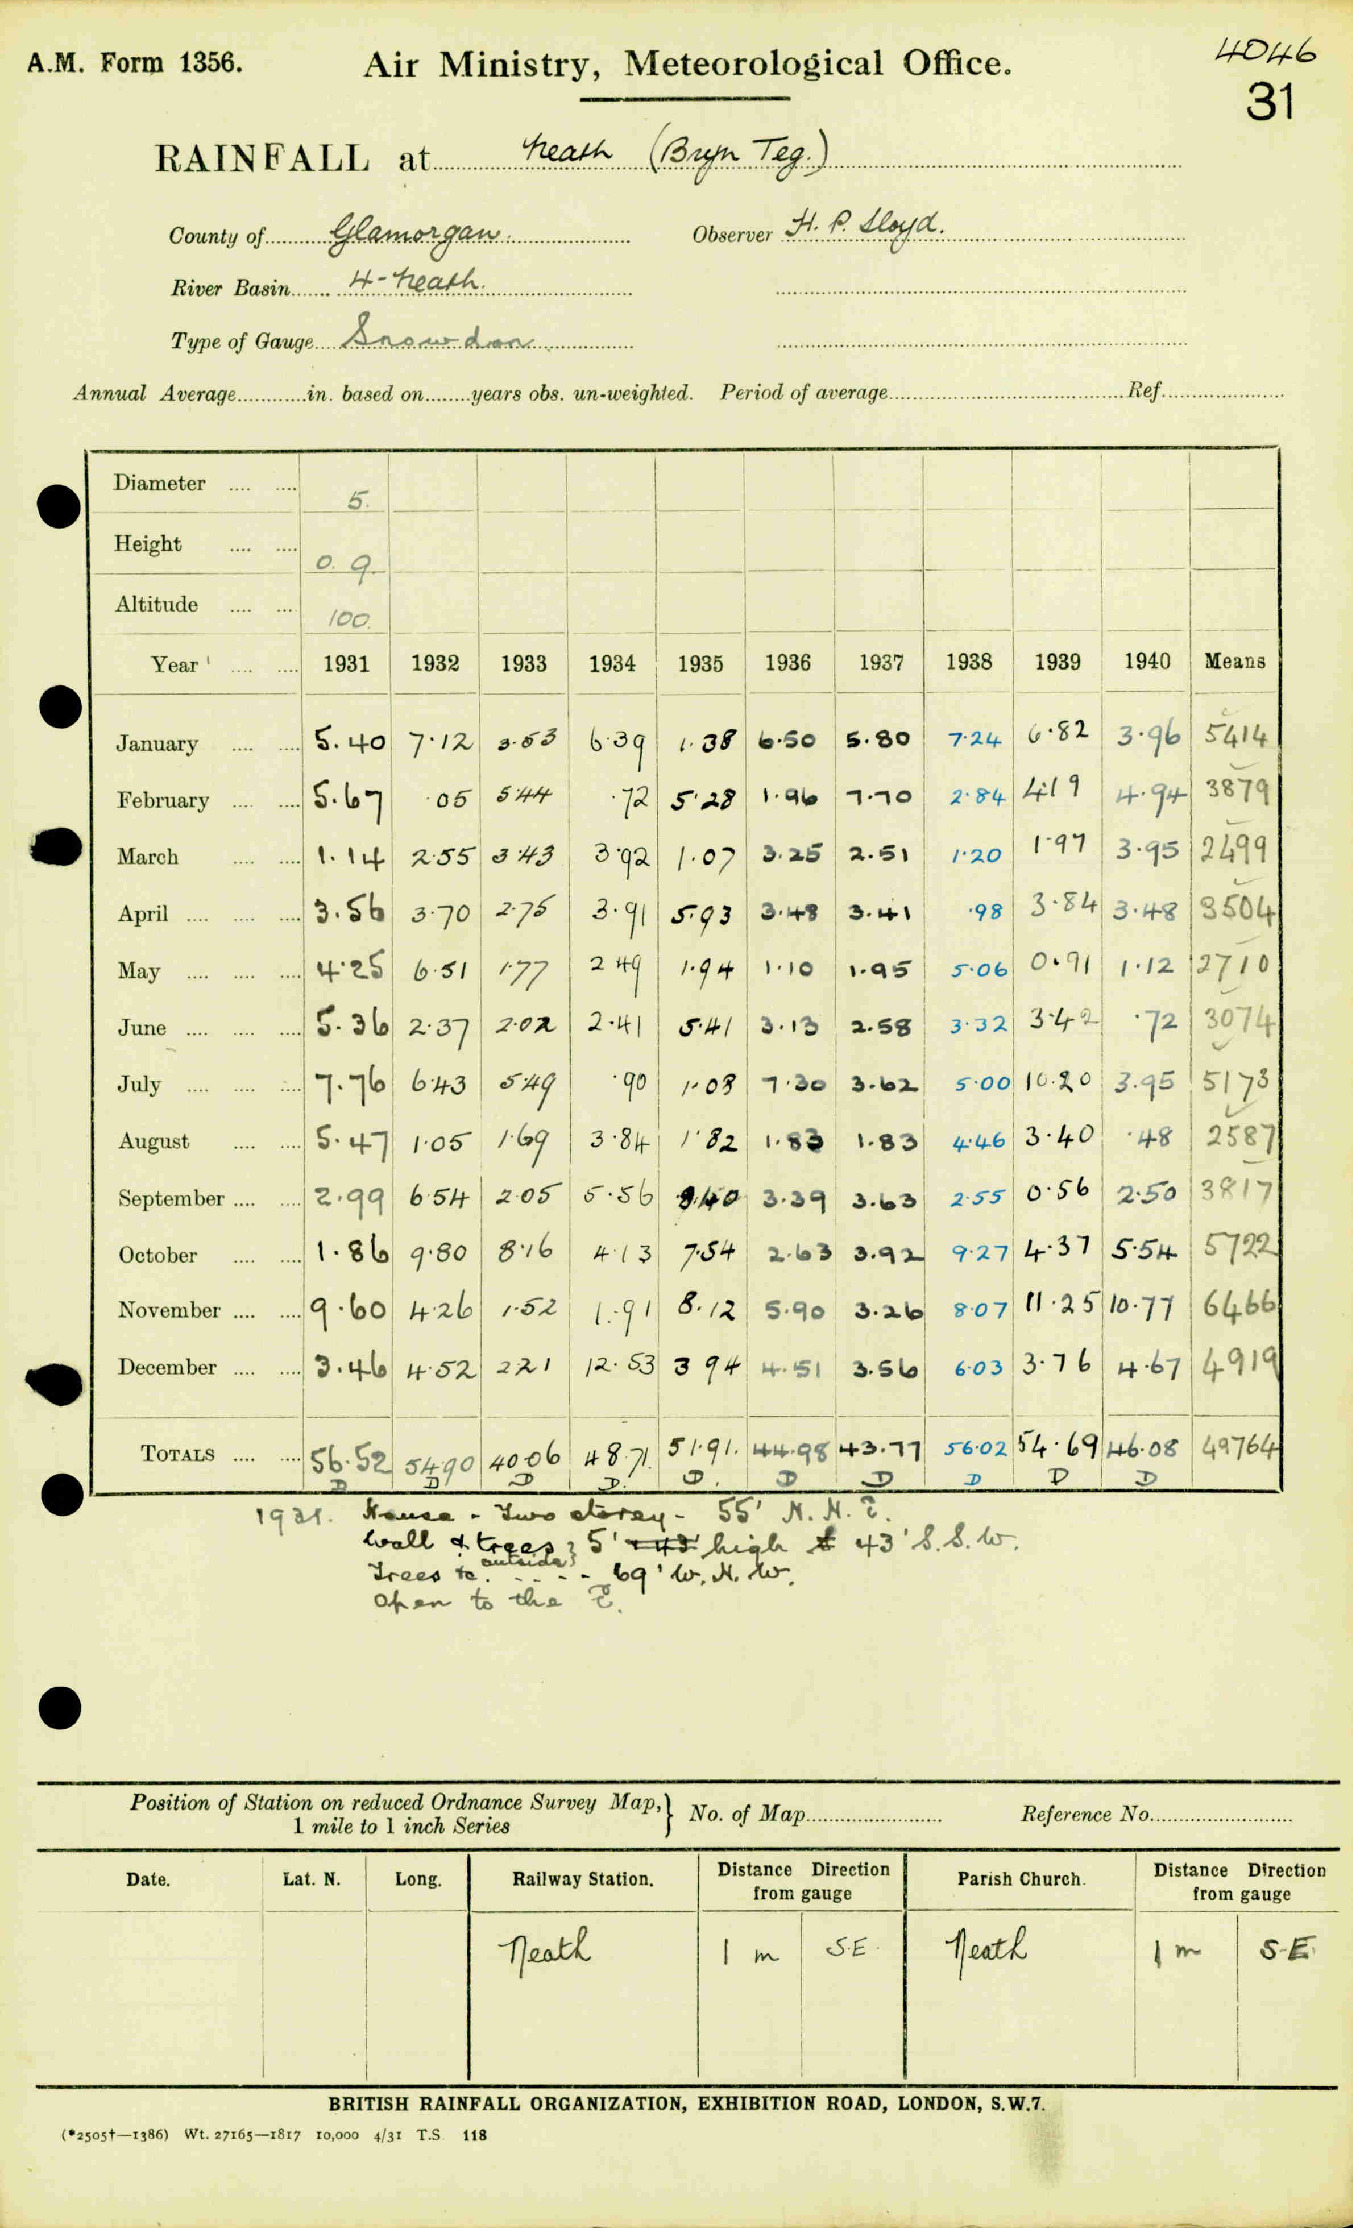 A.M. Form 1356.
Air Ministry, Meteorological Office.
4046
31
RAINFALL at Neath (Bryn Teg.)
County of Glamorgan. Observer H. P. Lloyd.
River Basin 4-Neath.
Type of Gauge Snowdon
Annual Average in. based on years obs. un-weighted. Period of average Ref.
Diameter 5.
Height 0. 9.
Altitude 100.
Year 1931 1932 1933 1934 1935 1936 1937 1938 1939 1940 Means
January 5.40 7.12 3.53 6.39 1.38 6.50 5.80 7.24 6.82 3.96 5414
February 5.67 .05 5.44 .72 5.28 1.96 7.70 2.84 4.19 4.94 3879
March 1.14 2.55 3.43 3.92 1.07 3.25 2.51 1.20 1.97 3.95 2499
April 3.56 3.70 2.75 3.91 5.93 3.48 3.41 .98 3.84 3.48 3504
May 4.25 6.51 1.77 2 49 1.94 1.10 1.95 5.06 0.91 1.12 2710
June 5.36 2.37 2.02 2.41 5.41 3.13 2.58 3.32 3.42 .72 3074
July 7.76 6.43 5.49 .90 1.08 7.30 3.62 5.00 10.20 3.95 5173
August 5.47 1.05 1.69 3.84 1.82 1.83 1.83 4.46 3.40 .48 2587
September 2.99 6.54 2.05 5.56 8.40 3.39 3.63 2.55 0.56 2.50 3817
October 1.86 9.80 8.16 4.13 7.54 2.63 3.92 9.27 4.37 5.54 5722
November 9.60 4.26 1.52 1.91 8.12 5.90 3.26 8.07 11.25 10.77 6466
December 3.46 4.52 2 21 12.53 3 94 4.51 3.56 6.03 3.76 4.67 4919
TOTALS 56.52 54.90 40.06 48.71. 51.91. 44.98 43.77 56.02 54.69 46.08 49764
D D D D. D. D D D D D
1931. House - Two storey - 55' N.N.E.
Wall & trees } 5' high 43' S.S.W.
Trees &c. outside } - - - - 69' W.N.W.
Open to the E.
Position of Station on reduced Ordnance Survey Map, } No. of Map Reference No.
1 mile to 1 inch Series
Date. Lat. N. Long. Railway Station. Distance Direction from gauge Parish Church. Distance Direction from gauge
Neath 1 m S.E. Neath 1 m S.E.
BRITISH RAINFALL ORGANIZATION, EXHIBITION ROAD, LONDON, S.W.7.
(*2505†—1386) Wt. 27165—1817 10,000 4/31 T.S. 118